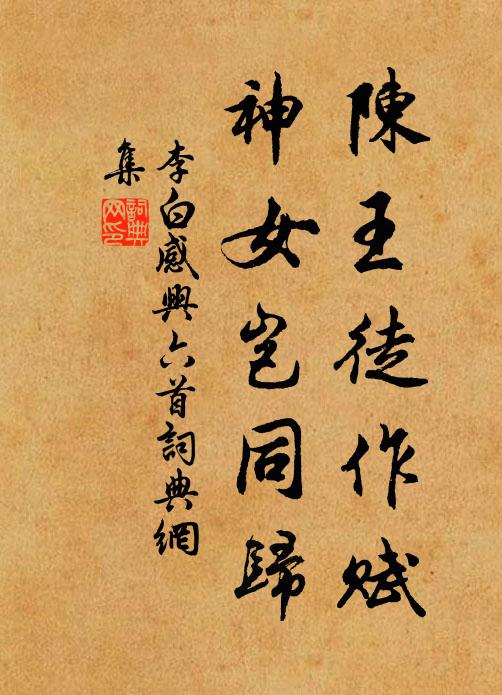 陳王徒作賦
神女豈同歸
李白感興六首詞典網
集
詞典網印